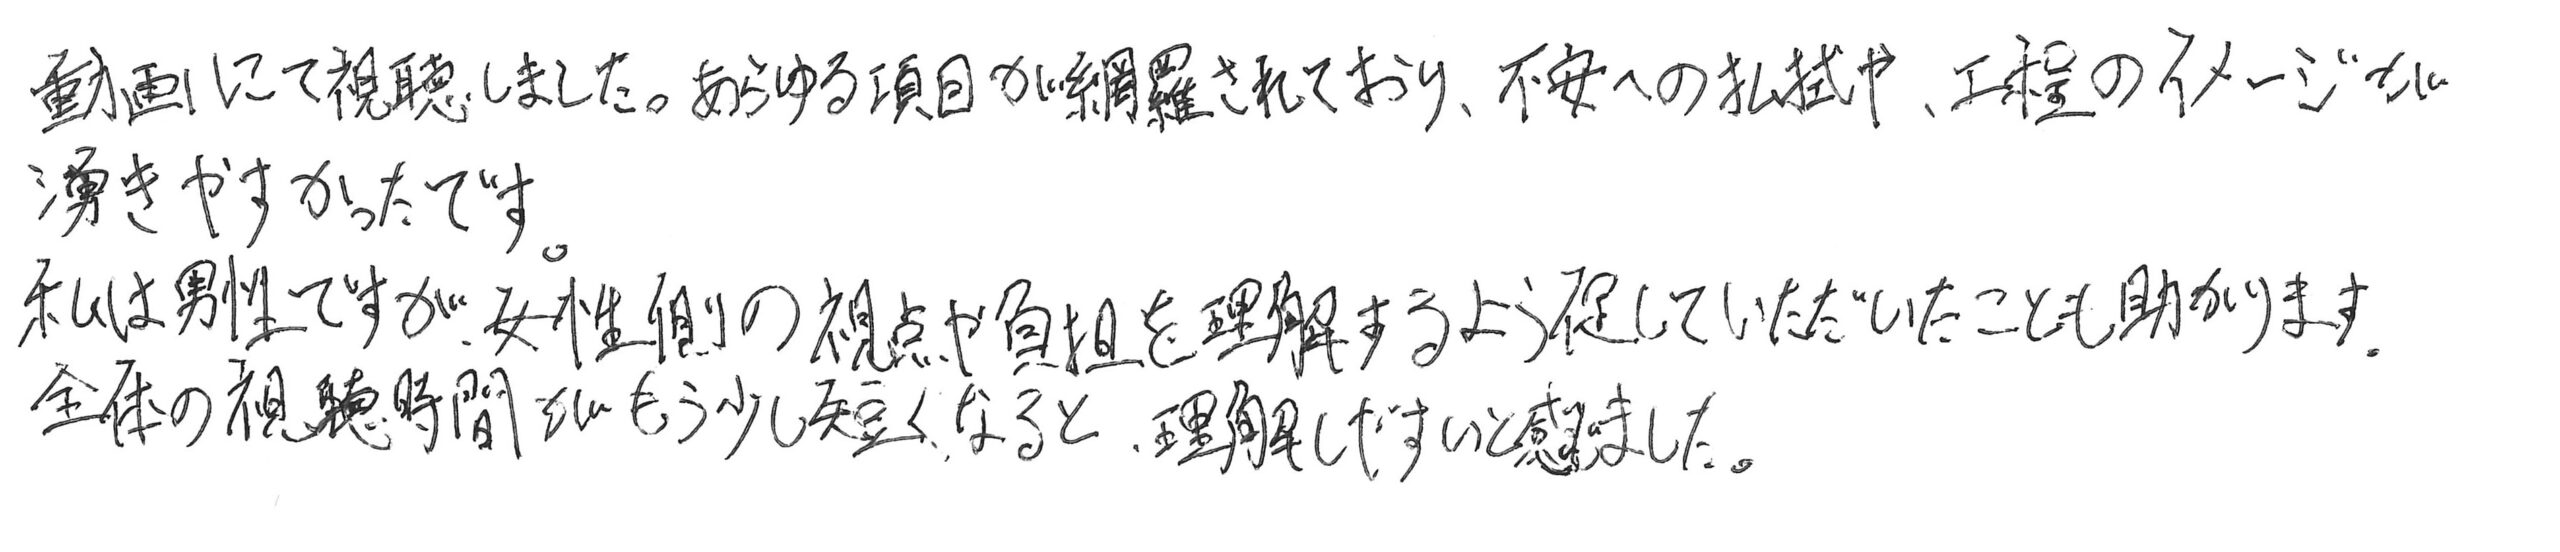 動画にて視聴しました。あらゆる項目が網羅されており、不安への払拭や、工程のイメージが
湧きやすかったです。
私は男性ですが、女性側の視点や負担を理解するよう促していただいたことも助かります。
全体の視聴時間がもう少し短くなると、理解しやすいと感じました。